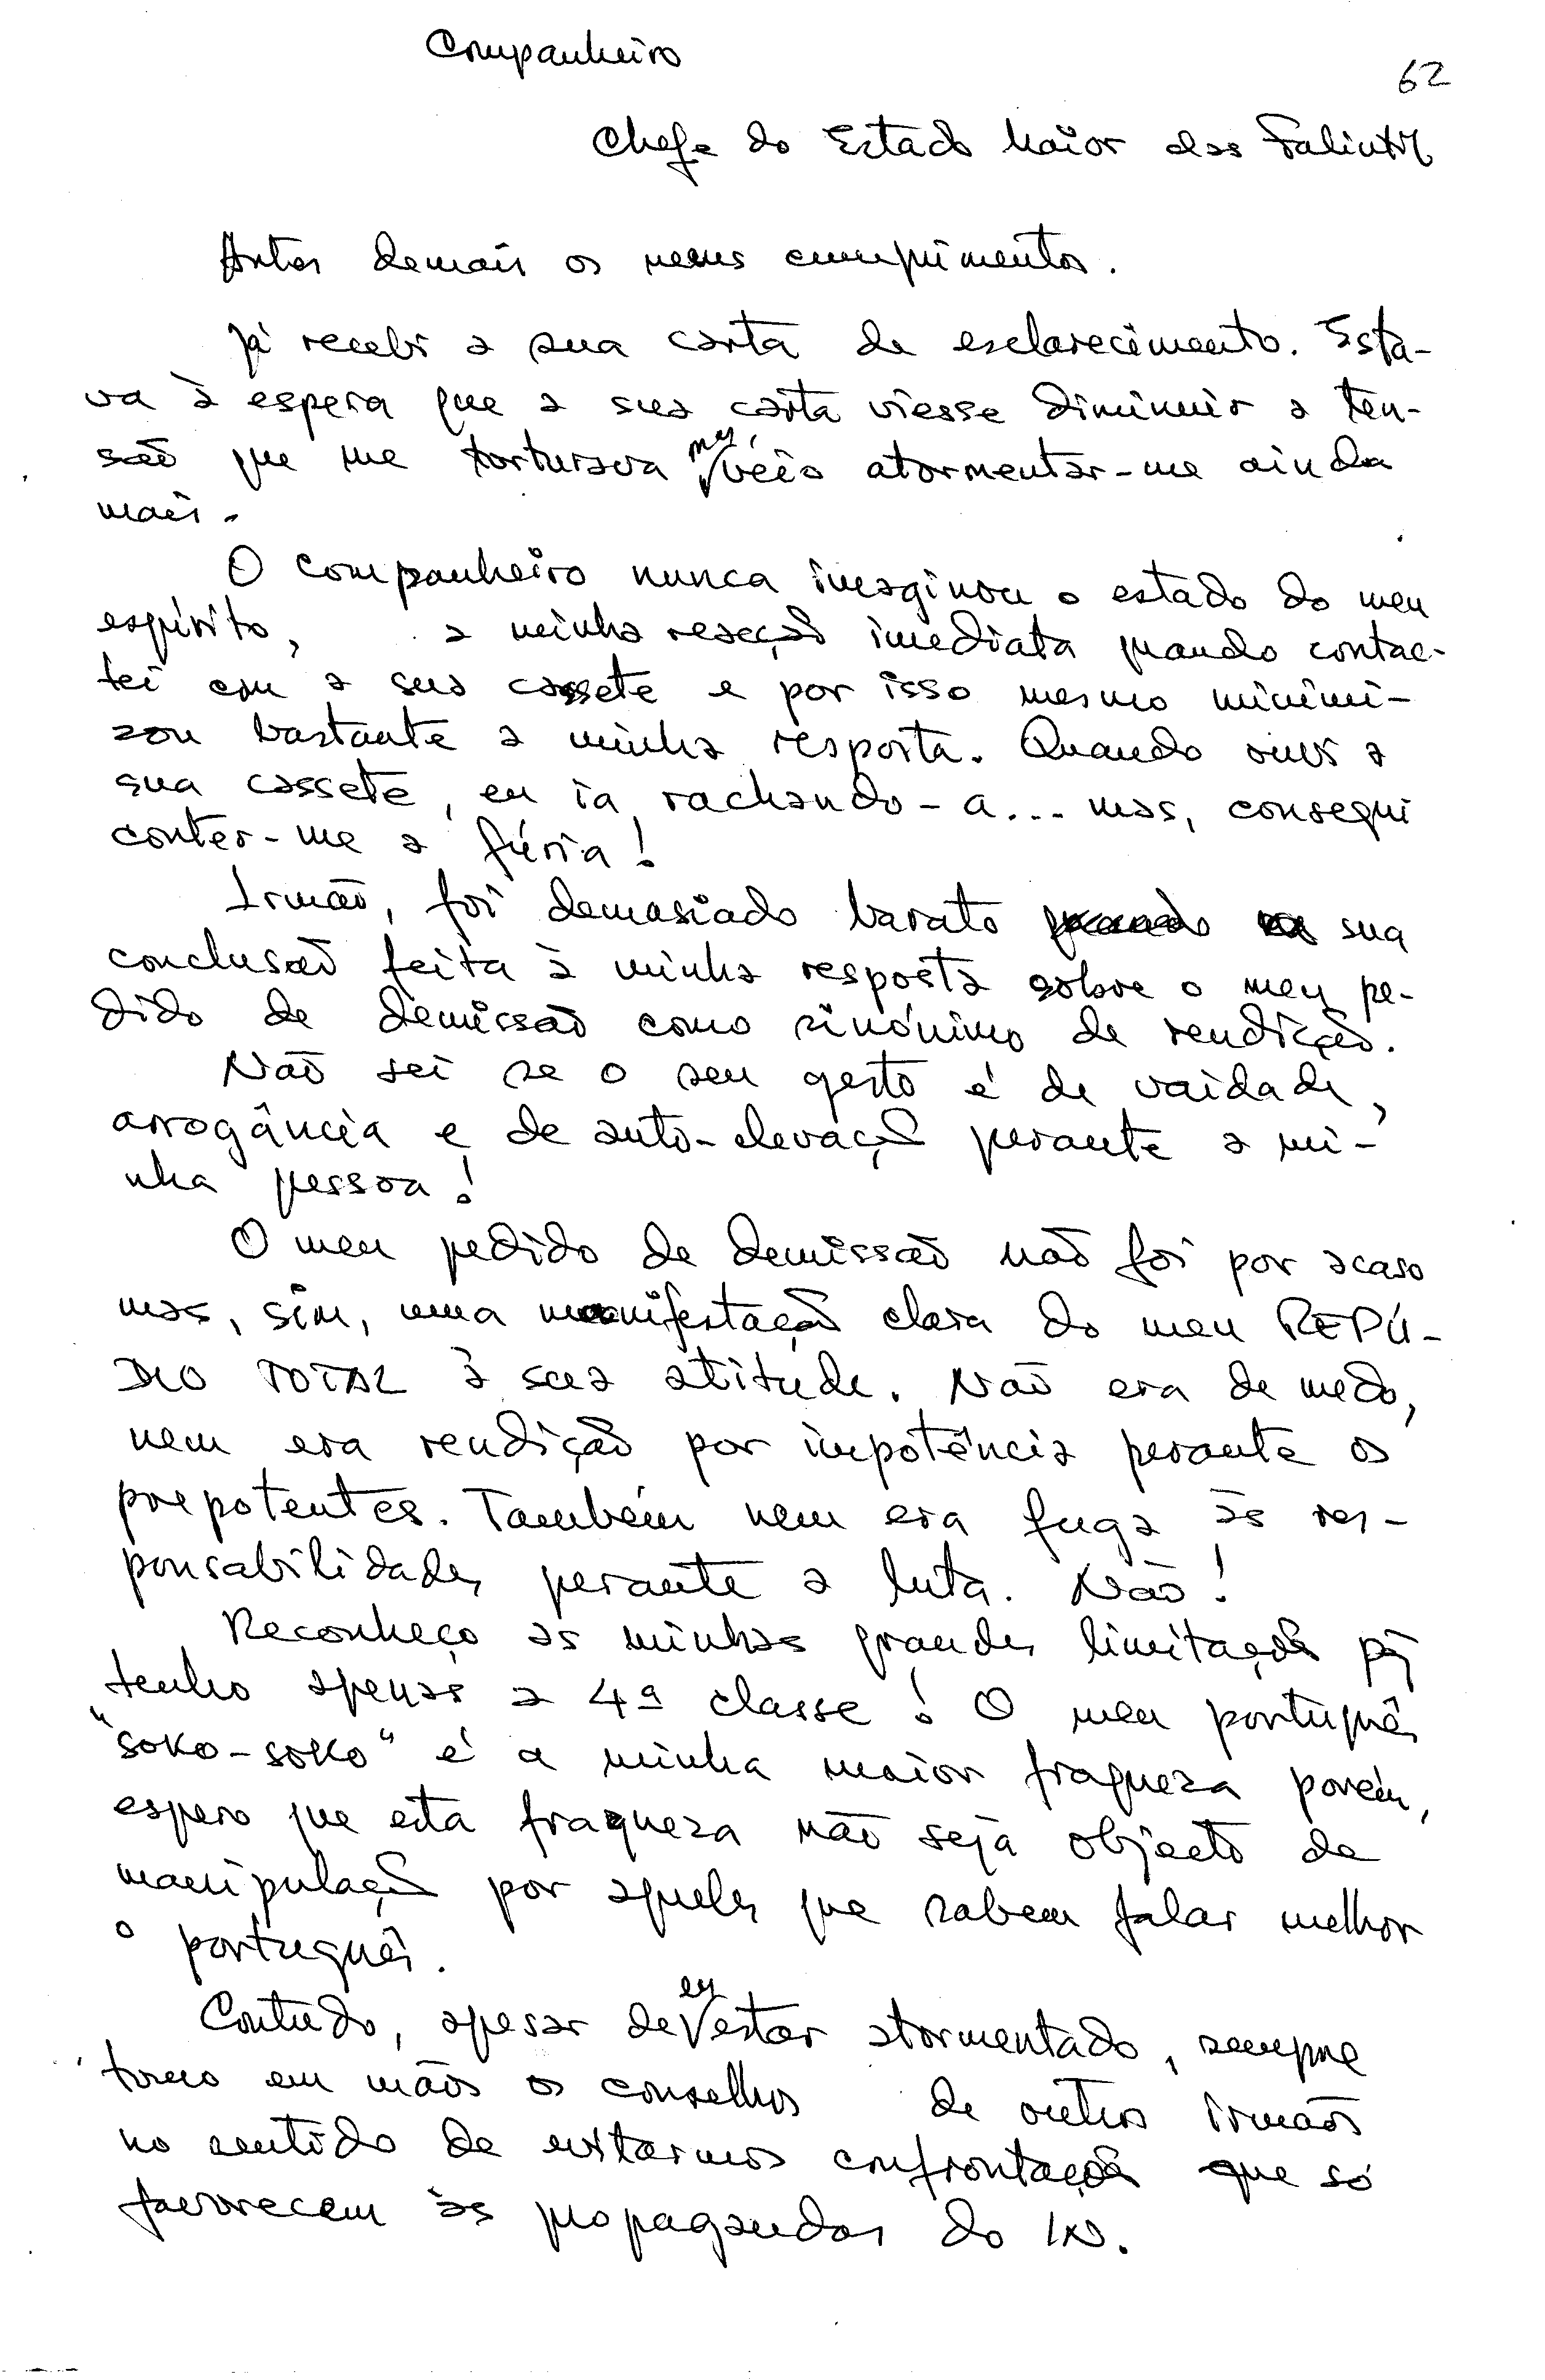 Companheiro
62
Chefe do Estado Maior das Falintil
Antes demais os meus cumprimentos.
Já recebi a sua carta de esclarecimento. Esta-
va à espera que a sua carta viesse diminuir a ten-
são que me torturava mas, veio atormentar-me ainda
mais.
O companheiro nunca imaginou o estado do meu
espírito, a minha reacção imediata quando contac-
tei com a sua cassete e por isso mesmo minimi-
zou bastante a minha resposta. Quando ouvi a
sua cassete, eu ia rachando-a... mas, consegui
conter-me a fúria!
Irmão, foi demasiado barato sua
conclusão feita à minha resposta sobre o meu pe-
dido de demissão como sinónimo de rendição.
Não sei se o seu gesto é de vaidade,
arrogância e de auto-elevação perante a mi-
nha pessoa!
O meu pedido de demissão não foi por acaso
mas, sim, uma manifestação clara do meu REPÚ-
DIO TOTAL à sua atitude. Não era de medo,
nem era rendição por impotência perante os
prepotentes. Também nem era fuga às res-
ponsabilidades perante a luta. Não!
Reconheço as minhas grandes limitações pq
tenho apenas a 4ª classe! O meu português
"soko-soko" é a minha maior fraqueza porém,
espero que esta fraqueza não seja objecto de
manipulação por aqueles que sabem falar melhor
o português.
Contudo, apesar de eu estar atormentado, sempre
tomo em mãos os conselhos de outros irmãos
no sentido de evitarmos confrontações que só
favorecem às propagandas do IN.